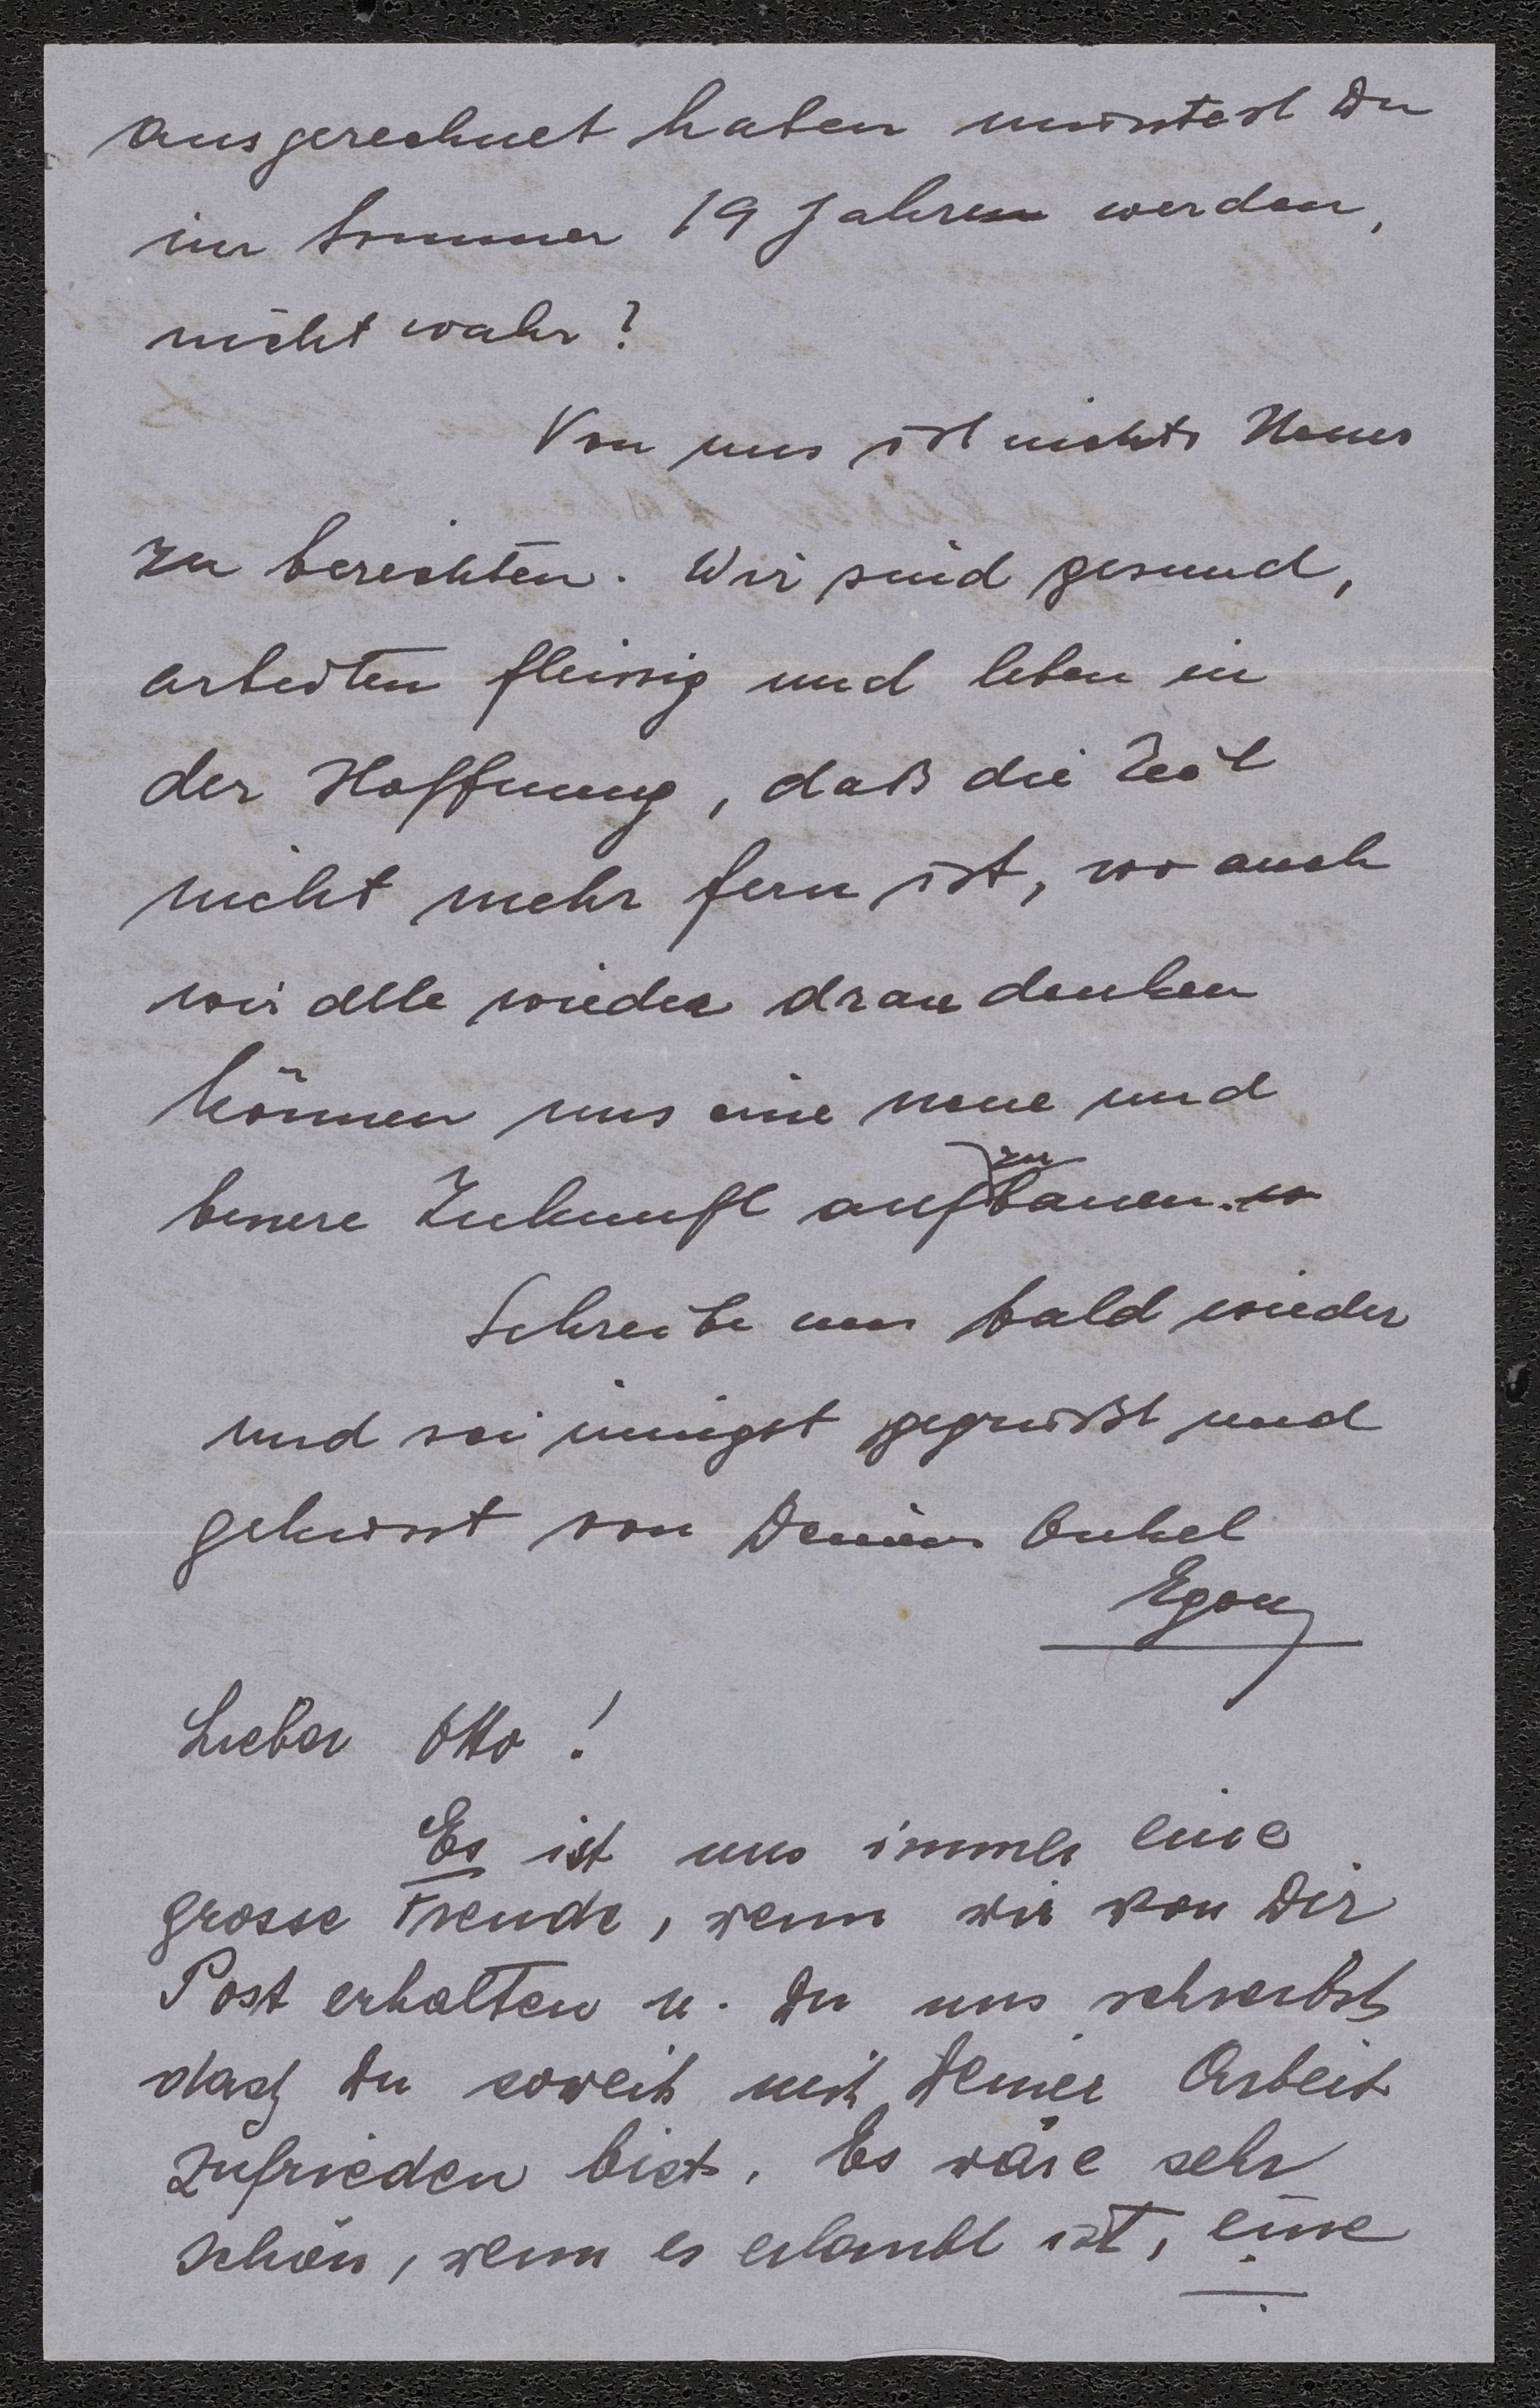 ausgerechnet haben müsstest Du
im Sommer 19 Jahre werden,
nicht wahr?
Von uns ist nichts Neues
zu berichten. Wir sind gesund,
arbeiten fleissig und leben in
der Hoffnung, daß die Zeit
nicht mehr fern ist, wo auch
wir alle wieder dran denken
können uns eine neue und
bessere Zukunft aufzubauen.
Schreibe uns bald wieder
und sei innigst gegrüßt und
geküsst von Deinem Onkel
Egon
Lieber Otto!
Es ist uns immer eine
grosse Freude, wenn wir von Dir
Post erhalten u. Du uns schreibst
dass Du soweit mit Deiner Arbeit
zufrieden bist. Es wäre sehr
schön, wenn es erlaubt ist, eine